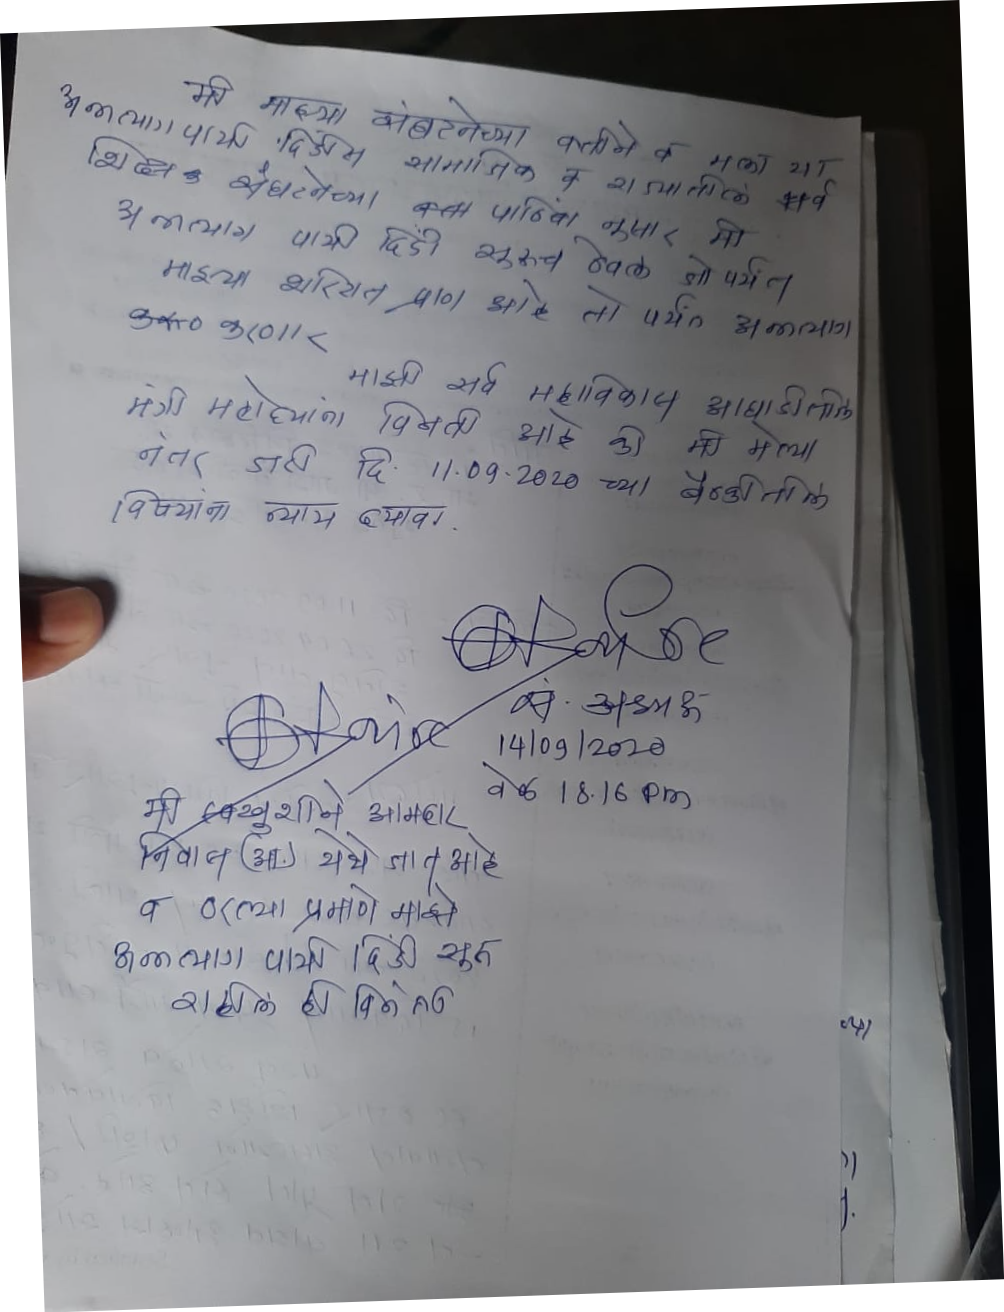 मी माझ्या संघटनेच्या वतीने व मला या
अन्नत्याग पायी दिंडीस सामाजिक व राज्यातील सर्व
शिक्षक संघटनेच्या पाठिंबा नुसार मी
अन्नत्याग पायी दिंडी सुरुच ठेवल जो पर्यंत
माझ्या शरिरात प्राण आहे तो पर्यंत अन्नत्याग
करणार
माझी सर्व महाविकास आघाडीतील
मंत्री महोदयांना विनंती आहे की मी मेल्या
नंतर तरी दि. 11.09.2020 च्या बैठकीतील
विषयांना न्याय द्यावा.
सं. अध्यक्ष
14/09/2020
वेळ 18.16 pm
मी स्वखुशीने आमदार
निवास (आ) येथे जात आहे
व ठरल्या प्रमाणे माझे
अन्नत्याग पायी दिंडी सुरु
राहील ही विनंती